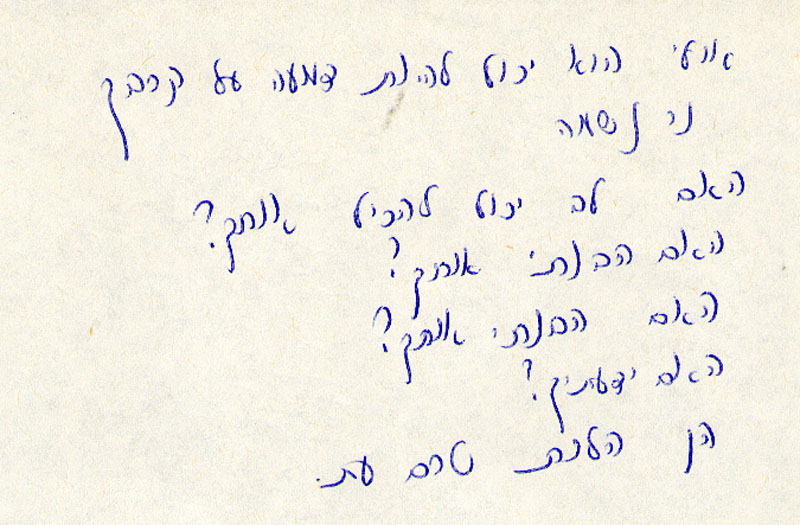 אולי הוא יכול להיות דמעה על קרבך
נר נשמה
האם לב יכול להכיל אותך?
האם הבנתי אותך?
האם הבנתי אותך?
האם ידעתיך?
הן הלכת טרם עת.